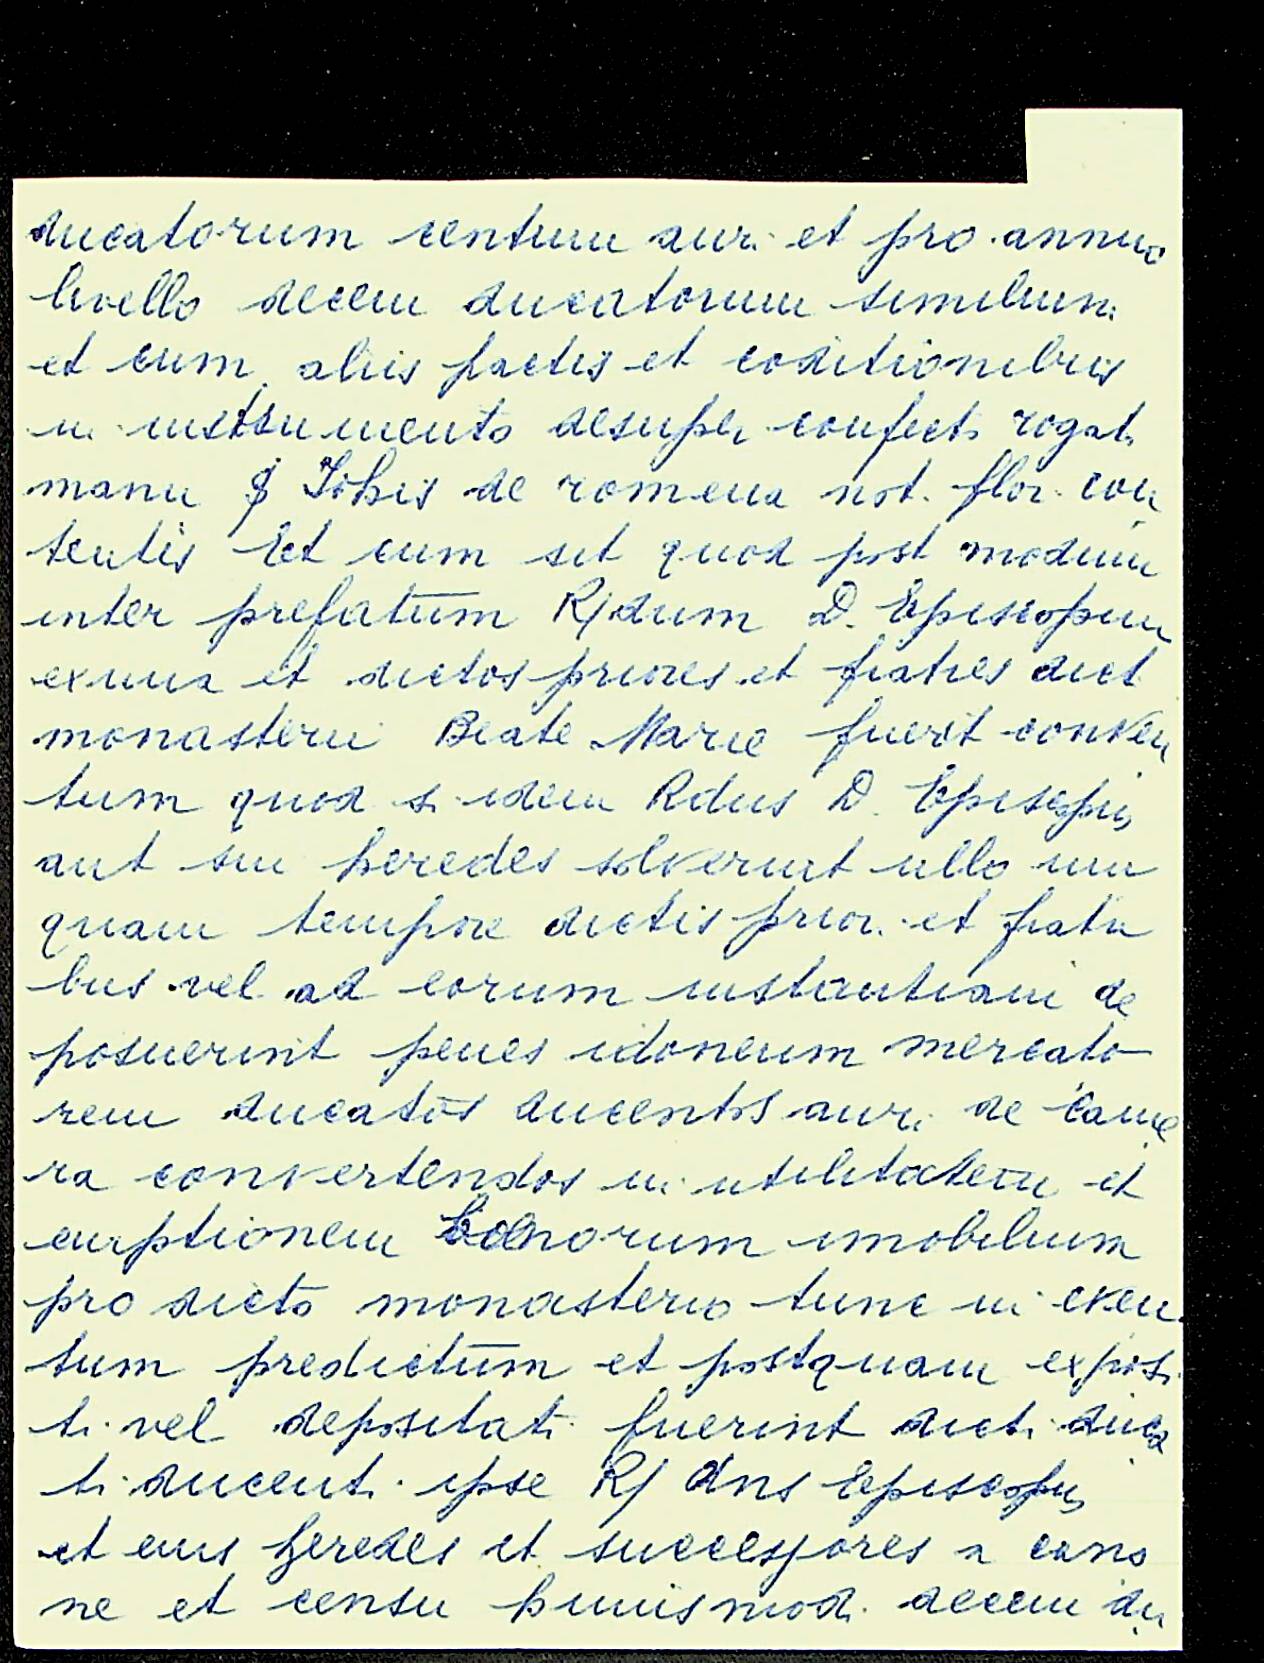 ducatorum centum auri et pro annuo
livello decem ducatorum similium
et cum aliis pactis et coditionibus
in instrumento desuper confecti rogati
manu S Johis de romena not. flor. con
tentis Et cum sit quod post modum
inter prefatum R/dum D. Episcopum
ex una et dictos priores et fratres dict
monasterii Beate Marie fuerit conven
tum quod si idem Rdus D. Episcopus
aut sui heredes solverint ullo un
quam tempore dictis prior. et fratri
bus vel ad eorum instantiam de
posuerint penes idoneum mercato
rem ducatos ducentos auri de Came
ra convertendos in utilitatem et
emptionem bonorum imobilium
pro dicto monasterio tunc in even
tum predictum et postquam exposi
ti vel depositati fuerint dicti duca
ti ducenti ipse R/ dns Episcopus
et eius heredes et successores a cano
ne et censu huiusmodi decem du